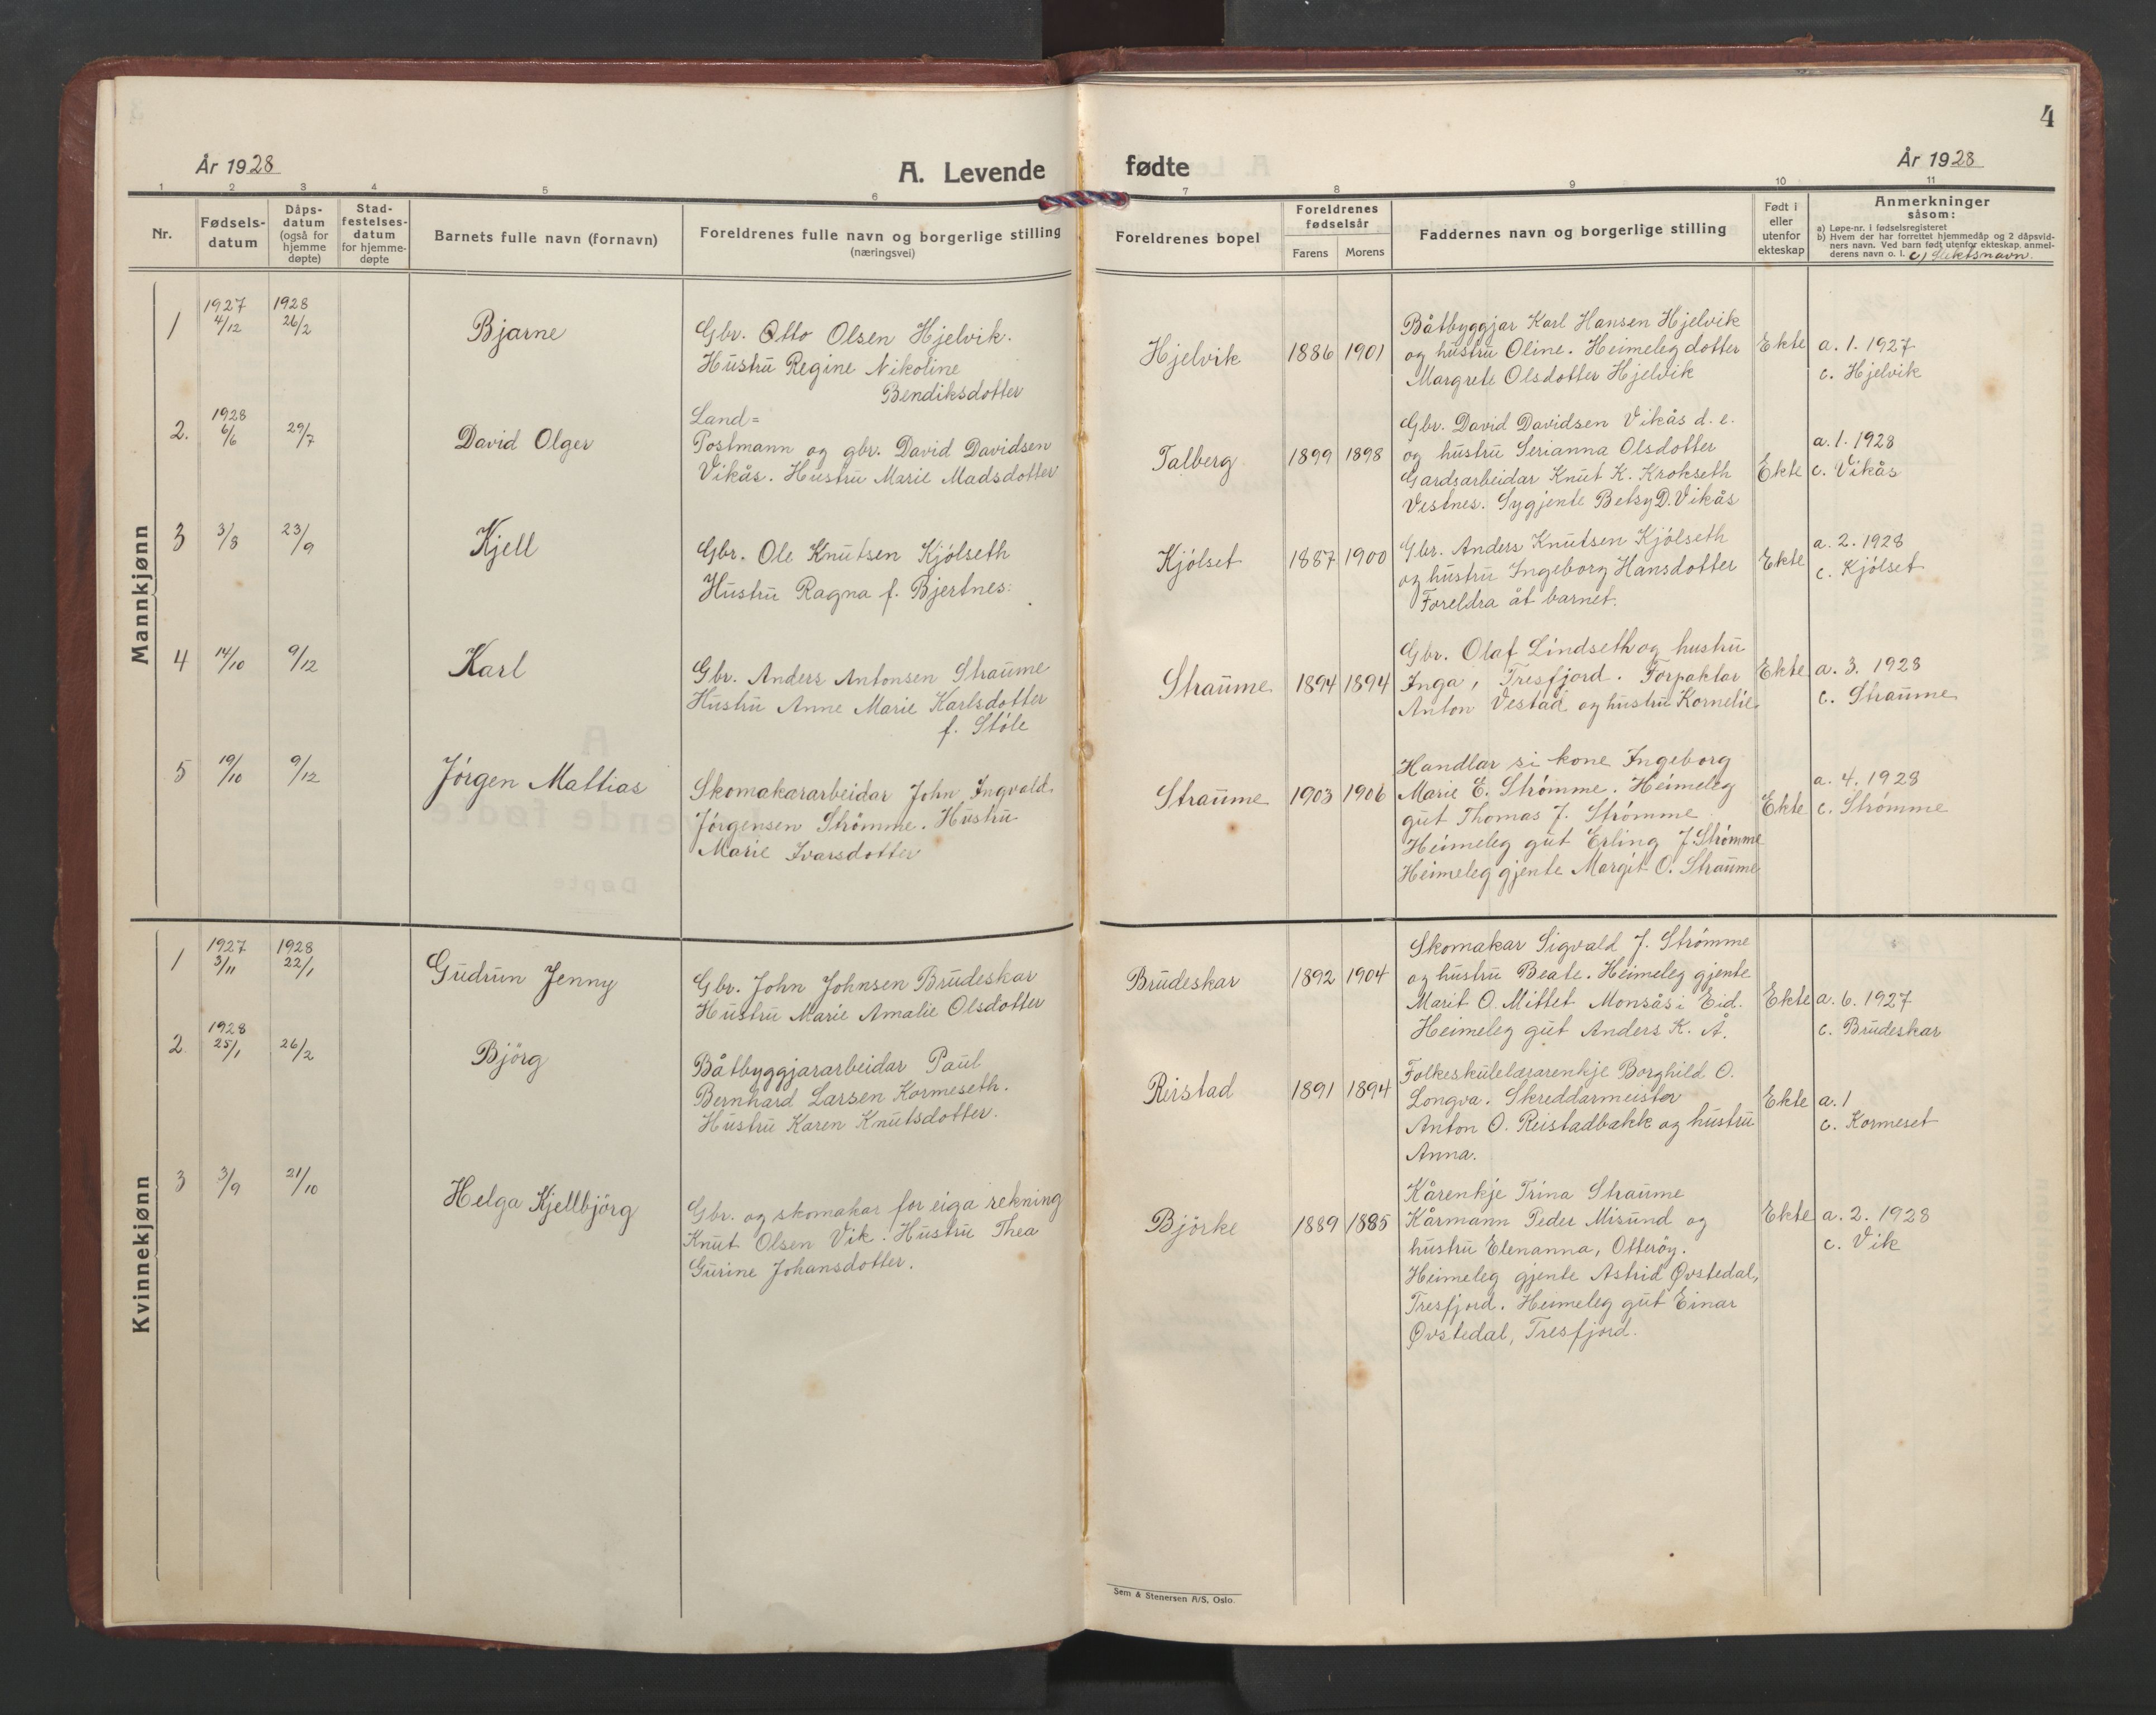 4
År 1928
A. Levende fødte
År 1928
1 2 3 4 5 6 7 8 9 10 11
Nr.
Fødsels-
datum
Dåps-
datum
(også for
hjemme
døpte)
Stad-
festelses-
datum
for hjemme-
døpte
Barnets fulle navn (fornavn)
Foreldrenes fulle navn og borgerlige stilling
(næringsvei)
Foreldrenes bopel
Foreldrenes
fødselsår
Farens Morens
Faddernes navn og borgerlige stilling
Født i
eller
utenfor
ekteskap
Anmerkninger
såsom:
a) Løpe-nr. i fødselsregisteret
b) Hvem der har forrettet hjemmedåp og 2 dåpsvid-
ners navn. Ved barn født utenfor ekteskap, anmel-
derens navn o. l. c) Slektsnavn.
Mannkjønn
1
1927
4/12
1928
26/2
Bjarne
Gbr. Otto Olsen Hjelvik.
Hustru Regine Nikoline
Bendiksdotter
Hjelvik
1886 1901
Båtbyggjar Karl Hansen Hjelvik
og hustru Oline. Heimeleg dotter
Margrete Olsdotter Hjelvik
Ekte
a. 1. 1927
c. Hjelvik
2.
1928
6/6
29/7
David Olger
Land=
Postmann og gbr. David Davidsen
Vikås. Hustru Marie Madsdotter
Talberg
1899 1898
Gbr. David Davidsen Vikås d. e.
og hustru Serianna Olsdotter
Gardsarbeidar Knut K. Krokseth
Vestnes. Sygjente Betsy D. Vikås
Ekte
a. 1. 1928
c. Vikås
3
3/8
23/9
Kjell
Gbr. Ole Knutsen Kjólseth
Hustru Ragna f. Bjertnes.
Kjólset
1887 1900
Gbr. Anders Knutsen Kjólseth
og hustru Ingeborg Hansdotter
Foreldra åt barnet.
Ekte
a. 2. 1928
c. Kjólset
4
14/10
9/12
Karl
Gbr. Anders Antonsen Straume
Hustru Anne Marie Karlsdotter
f. Stóle
Straume
1894 1894
Gbr. Olaf Lindseth og hustru
Inga, Tresfjord. Forpaktar
Anton Vestad og hustru Kornelie.
Ekte
a. 3. 1928
c. Straume
5
19/10
9/12
Jórgen Mattias
Skomakararbeidar John Ingvald.
Jórgensen Strómme. Hustru
Marie Ivarsdotter
Straume
1903 1906
Handlar si kone Ingeborg
Marie E. Strómme. Heimeleg
gut Thomas J. Strómme
Heimeleg gut Erling J. Strómme
Heimeleg gjente Margit O. Straume
Ekte
a. 4. 1928
c. Strómme
Kvinnekjønn
1
1927
3/11
1928
22/1
Gudrun Jenny
Gbr. John Johnsen Brudeskar
Hustru Marie Amalie Olsdotter
Brudeskar
1892 1904
Skomakar Sigvald J. Strómme
og hustru Beate. Heimeleg gjente
Marit O. Mittet Monsås i Eid.
Heimeleg gut Anders K. Å.
Ekte
a. 6. 1927
c. Brudeskar
2
1928
25/1
26/2
Björg
Båtbyggjararbeidar Paul
Bernhard Larsen Kormeseth.
Hustru Karen Knutsdotter.
Reistad
1891 1894
Folkeskulelærarenkje Borghild O.
Longva. Skreddarmeister
Anton O. Reistadbakk og hustru
Anna.
Ekte
a. 1
c. Kormeset
3
3/9
21/10
Helga Kjellbjörg
Gbr. og skomakar for eiga rekning
Knut Olsen Vik. Hustru Thea
Gurine Johansdotter.
Bjórke
1889 1885
Kårenkje Trina Straume
Kårmann Peder Misund og
hustru Elenanna, Otteröy.
Heimeleg gjente Astrid Øvstedal,
Tresfjord. Heimeleg gut Einar
Øvstedal, Tresfjord.
Ekte
a. 2. 1928
c. Vik
Sem & Stenersen A/S, Oslo.